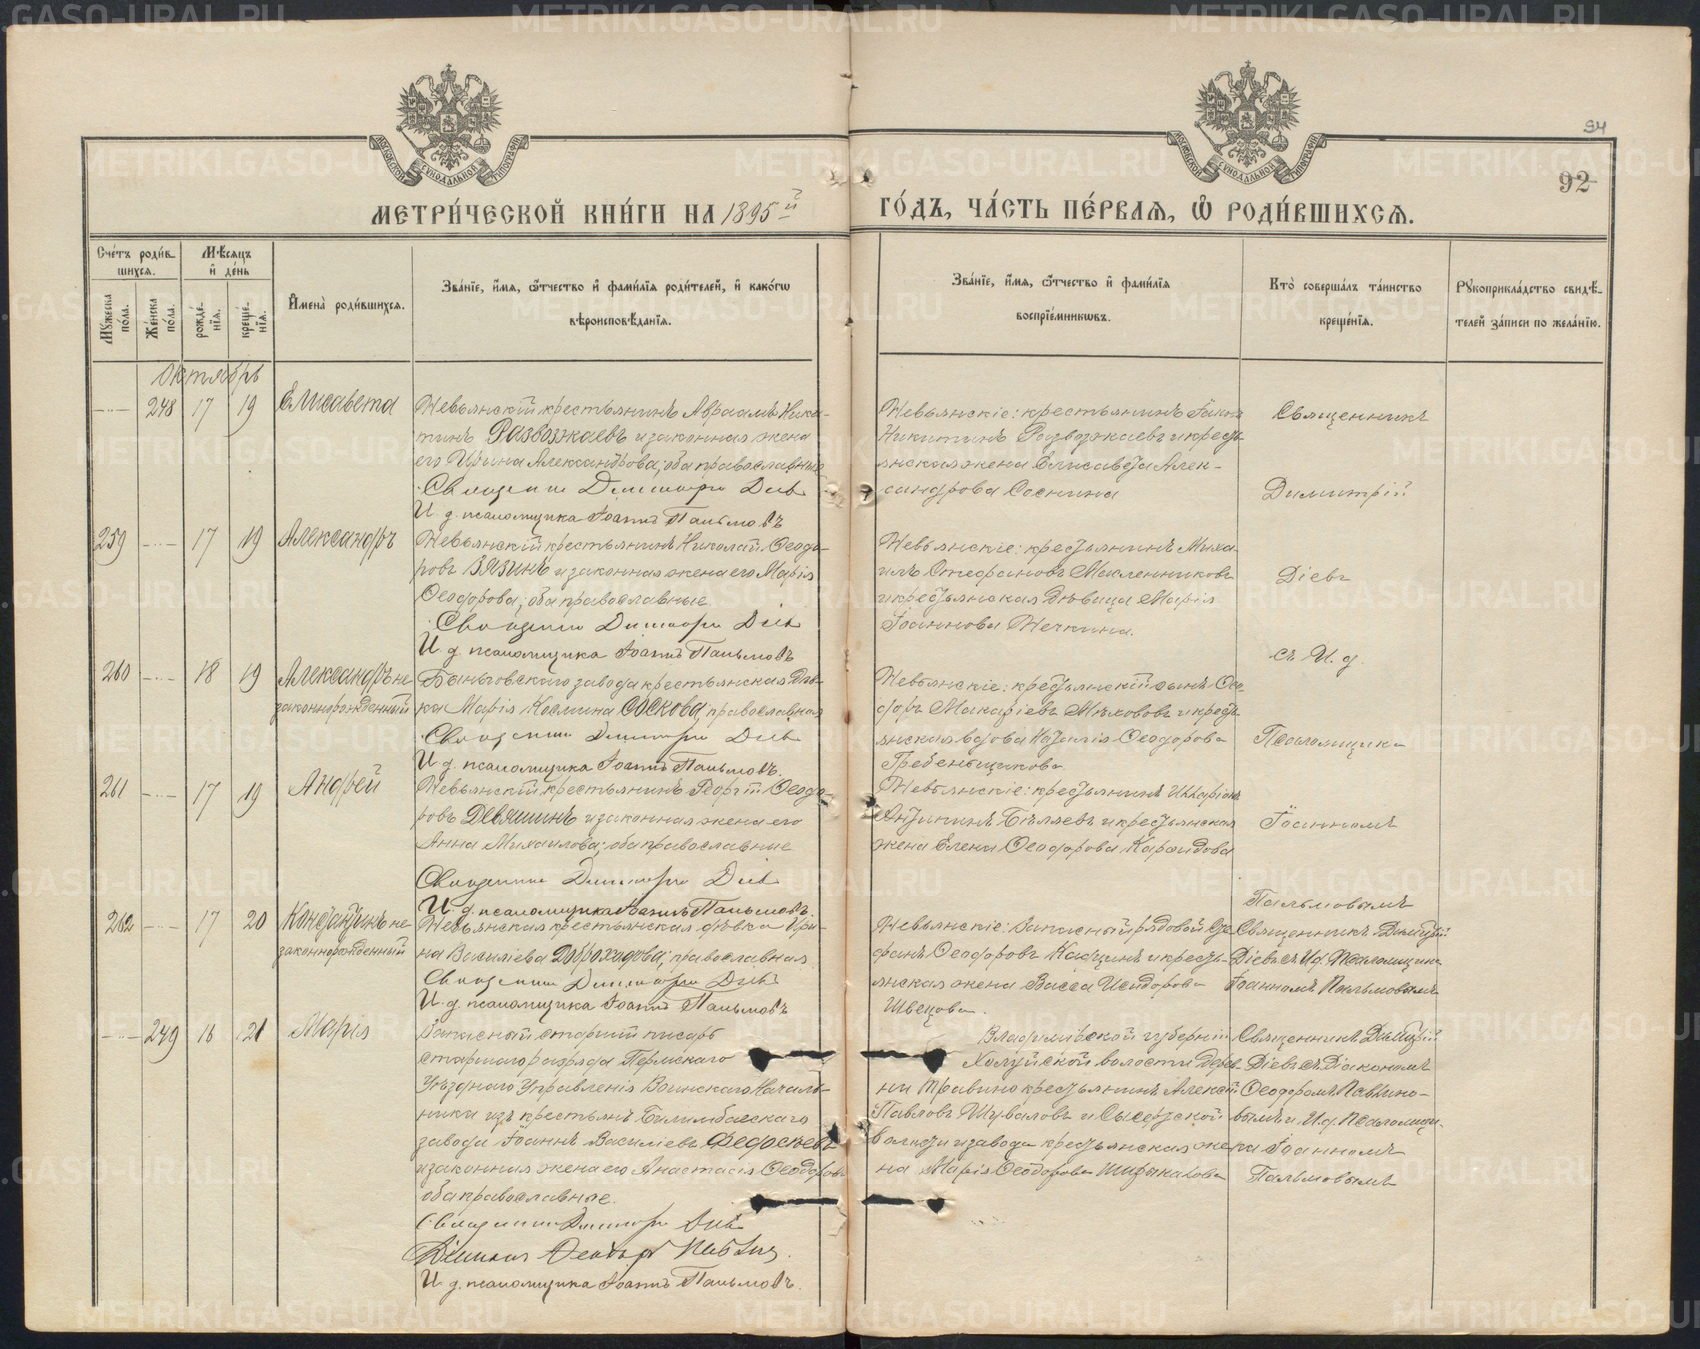 94
92
МЕТРИ́ЧЕСКОЙ КНИ́ГИ НА 1895й
ГО́ДЪ, ЧА́СТЬ ПЕ́РВАЯ, Ѡ҆ РОДИ́ВШИХСЯ.
Сче́тъ роди́в-
шихся.
Мꙋжеска по́ла.
Же́нска по́ла.
Мѣ́сяцъ
и҆ де́нь
рожде́-
нїя.
креще́-
нїя.
И҆мена̀ роди́вшихся.
Зва́нїе, и҆́мя, ѻ҆́тчество и҆ фами́лїя роди́телей, и҆ како́гѡ
вѣроисповѣ́данїя.
Зва́нїе, и҆́мя, ѻ҆́тчество и҆ фами́лїя
воспрїе́мникѡвъ.
Кто̀ соверша́лъ та́инство
креще́нїя.
Рꙋкоприкла́дство свидѣ́-
телей за́писи по жела́нїю.
Октябрь
248 17 19 Елисавета
Невьянскій крестьянинъ Авраамъ Ники-
тинъ Развозжаевъ и законная жена
его Ирина Александрова; оба православные
Священникъ Димитрій Діевъ
И. д. псаломщика Іоаннъ Пальмовъ
Невьянскіе: крестьянинъ
Никитинъ Развозжаевъ и кресть-
янская жена Елисавета Алек-
сандрова Соснина
Священникъ
Димитрій
259 17 19 Александръ
Невьянскій крестьянинъ Николай Ѳеодо-
ровъ Вязинъ и законная жена его Марія
Ѳеодорова; оба православные
Священникъ Димитрій Діевъ
И. д. псаломщика Іоаннъ Пальмовъ
Невьянскіе: крестьянинъ Миха-
илъ Стефановъ Масленниковъ
и крестьянская дѣвица Марія
Іоаннова Нечкина.
Діевъ
съ И. д.
260 18 19 Александръ не-
законнорожденный
Быньговскаго завода крестьянская дѣв-
ка Марія Космина Соскова, православная
Священникъ Димитрій Діевъ
И. д. псаломщика Іоаннъ Пальмовъ.
Невьянскіе: крестьянскій сынъ Ѳео-
доръ Макаріевъ Мѣховъ и кресть-
янская вдова Наталія Ѳеодорова
Гребенщикова
Псаломщика
261 17 19 Андрей
Невьянскій крестьянинъ Георгій Ѳеодо-
ровъ Девяшинъ и законная жена его
Анна Михаилова; оба православные
Священникъ Димитрій Діевъ
И. д. псаломщика Іоаннъ Пальмовъ.
Невьянскіе: крестьянинъ Иларіонъ
Бѣляевъ и крестьянская
жена Елена Ѳеодорова
Іоанномъ
Пальмовымъ
262 17 20 Константинъ не-
законнорожденный
Невьянская крестьянская дѣвка Ири-
на Василіева Доброходова; православная
Священникъ Димитрій Діевъ
И. д. псаломщика Іоаннъ Пальмовъ
Невьянскіе: Запасный рядовой Сте-
фанъ Ѳеодоровъ и кресть-
янская жена Васса Исидорова
Швецова.
Священникъ Димитрій
Діевъ съ И.д. Псаломщика
Іоанномъ Пальмовымъ
249 16 21 Марія
Запасный старшій писарь
старшаго разряда Пермскаго
Уѣзднаго Управленія Воинскаго Началь-
ника изъ крестьянъ Билимбаевскаго
завода Іоаннъ Василіевъ Федосѣевъ
и законная жена его Анастасія Ѳеодорова
оба православные.
Священникъ Димитрій Діевъ
Діаконъ Ѳеодоръ
И. д. псаломщика Іоаннъ Пальмовъ.
Владимірской губерніи
Холуйской волости дерев-
ни Травино крестьянинъ Алексій
Павловъ Шуваловъ и Сысертской
волости и завода крестьянская же-
на Марія Ѳеодорова
Священникъ Димитрій
Діевъ съ Діакономъ
Ѳеодоромъ Павлино-
вымъ и И.д. Псаломщи-
ка Іоанномъ
Пальмовымъ